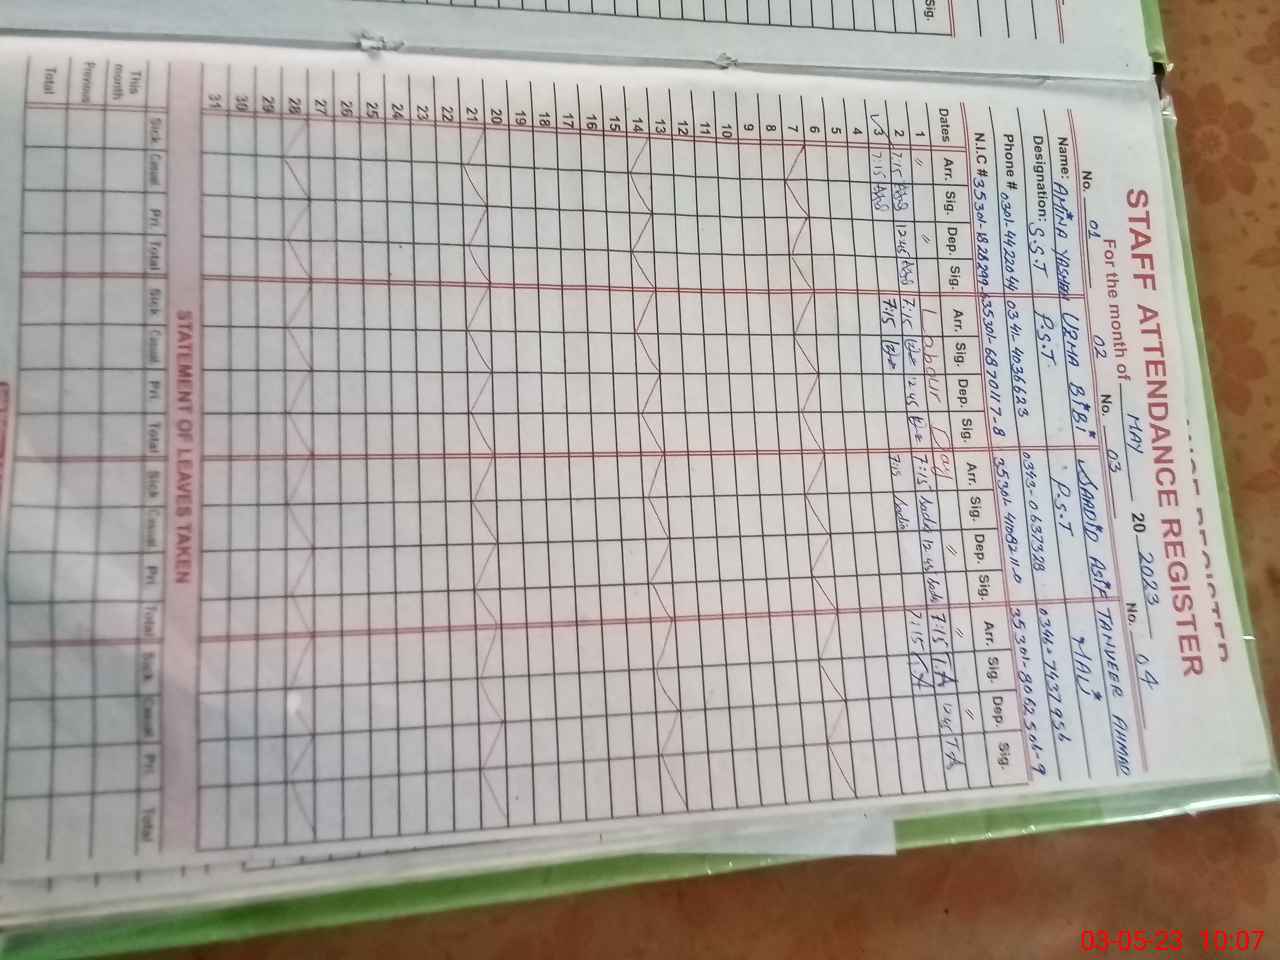 Sig.
STAFF ATTENDANCE REGISTER
For the month of MAY 20 2023
No. 01 02 No. 03 No. 04
Name: AMINA URMA BIBI ASIF TANVEER AHMAD
Designation: S.S.T P.S.T P.S.T
Phone # 0301-4422044 0341-4036623 0343-0637328 0346-7437956
N.I.C # 35301-1828299-6 35301-6870117-8 35301-4108211-0 35301-8062506-9
Dates Arr. Sig. Dep. Sig. Arr. Sig. Dep. Sig. Arr. Sig. Dep. Sig. Arr. Sig. Dep. Sig.
1 〃 〃 Labour Day 〃 〃 〃
2 7:15 12:45 7:15 12 45 7:15 12 45 7:15 T.A T.A
3 7:15 7:15 7:15 7:15 T.A
4
5
6
7
8
9
10
11
12
13
14
15
16
17
18
19
20
21
22
23
24
25
26
27
28
29
30
31
STATEMENT OF LEAVES TAKEN
Sick Casual Pri. Total Sick Casual Pri. Total Sick Casual Pri. Total Sick Casual Pri. Total
This month
Previous
Total
03-05-23 10:07